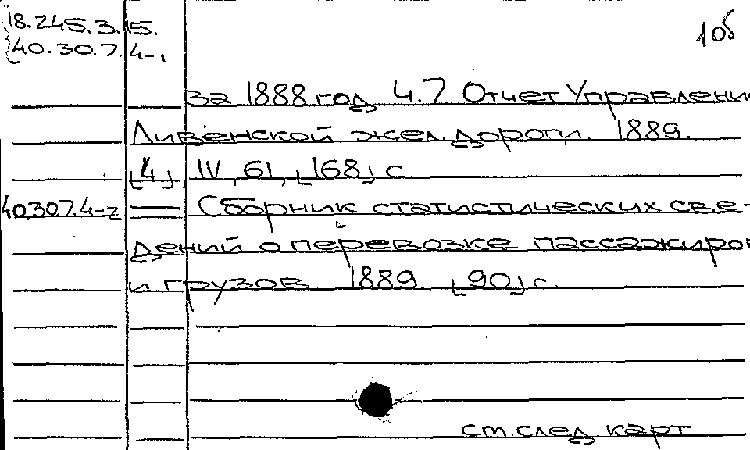 18.245.3.15.
40.30.7.4-1
105
за 1888 год Ч.7 Отчет Управлени
Ливенской жел. дороги. 1889.
[4], IV, 61, [168] с
40.307.4-2 — Сборник статистических све-
дений о перевозке пассажиров
и грузов 1889 [90] с.
см. след карт